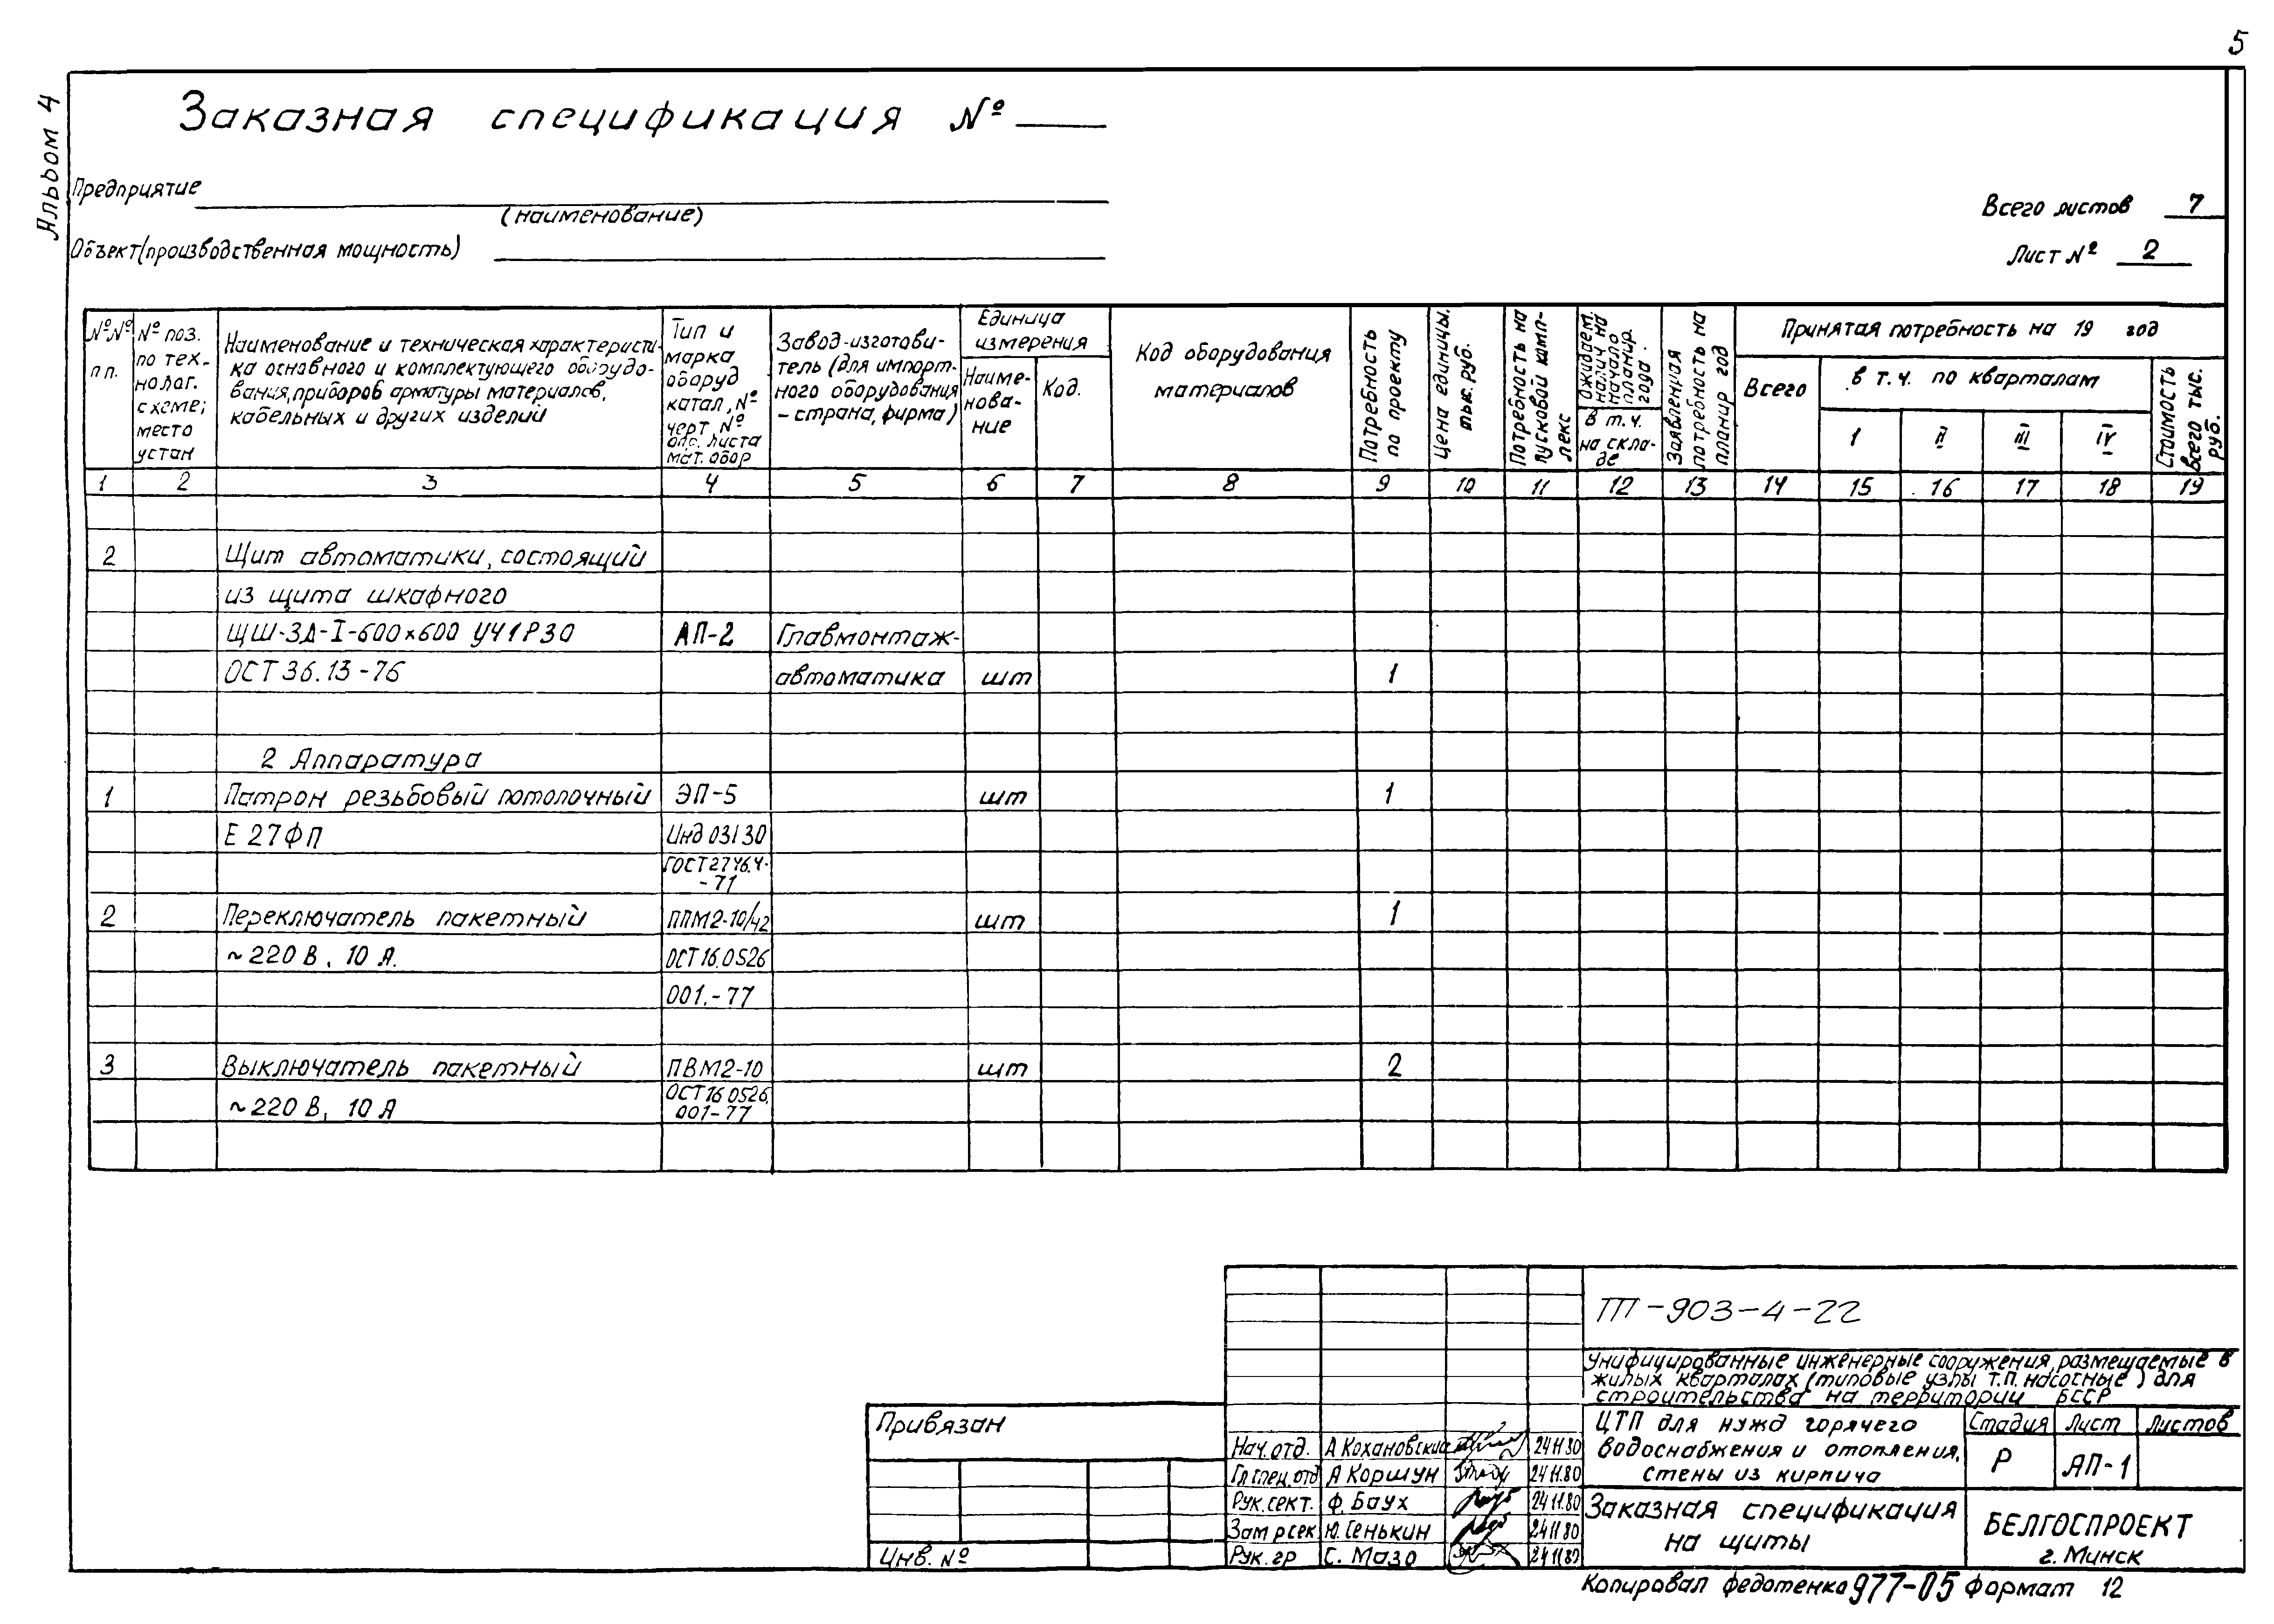 5
Альбом 4
Заказная спецификация №
Предприятие
(наименование)
Объект (производственная мощность)
Всего листов 7
Лист № 2
№№ п.п.
№ поз. по тех- нолог. схеме; место устан
Наименование и техническая характеристи-
ка основного и комплектующего оборудо-
вания, приборов арматуры материалов,
кабельных и других изделий
Тип и
марка
оборуд
катал, №
черт, №
опс. листа
мат. обор
Завод-изготови-
тель (для импорт-
ного оборудования
- страна, фирма)
Единица
измерения
Наиме-
нова-
ние
Код.
Код оборудования
материалов
Потребность
по проекту
Цена единицы.
тыс. руб.
Потребность на
пусковой комп-
лекс
Ожидаем.
налич на
начало
планир.
года.
в т.ч.
на скла-
де
Заявленная
потребность на
планир год
Принятая потребность на 19 год
Всего
в т.ч. по кварталам
I II III IV
Стоимость
всего тыс.
руб.
1 2 3 4 5 6 7 8 9 10 11 12 13 14 15 16 17 18 19
2 Щит автоматики, состоящий
из щита шкафного
ЩШ-ЗД-I-600×600 УЧ1Р30 АП-2 Главмонтаж-
ОСТ 36.13-76 автоматика шт 1
2 Аппаратура
1 Патрон резьбовый потолочный ЭП-5 шт 1
Е 27ФП Инд 03130
ГОСТ 2746.4-
-71
2 Переключатель пакетный ППМ2-10/Н2 шт 1
~220 В, 10 А. ОСТ 16.0526
001.-77
3 Выключатель пакетный ПВМ2-10 шт 2
~220 В, 10 А ОСТ 16 0526.
001-77
ТП-903-4-22
Унифицированные инженерные сооружения, размещаемые в
жилых кварталах (типовые узлы т.п. насосные) для
строительства на территории БССР
Привязан
Инв. №
Нач. отд. А Кохановский 24 11 80
Гл спец. отд А Коршун 24 11.80
Рук. сект. Ф. Баух 24 11.80
Зам р сек Ю. Сенькин 24 11 80
Рук. гр С. Мазо 24 11 80
ЦТП для нужд горячего
водоснабжения и отопления,
стены из кирпича
Стадия Лист Листов
Р АП-1
Заказная спецификация
на щиты
БЕЛГОСПРОЕКТ
г. Минск
Копировал Федотенко 977-05 Формат 12